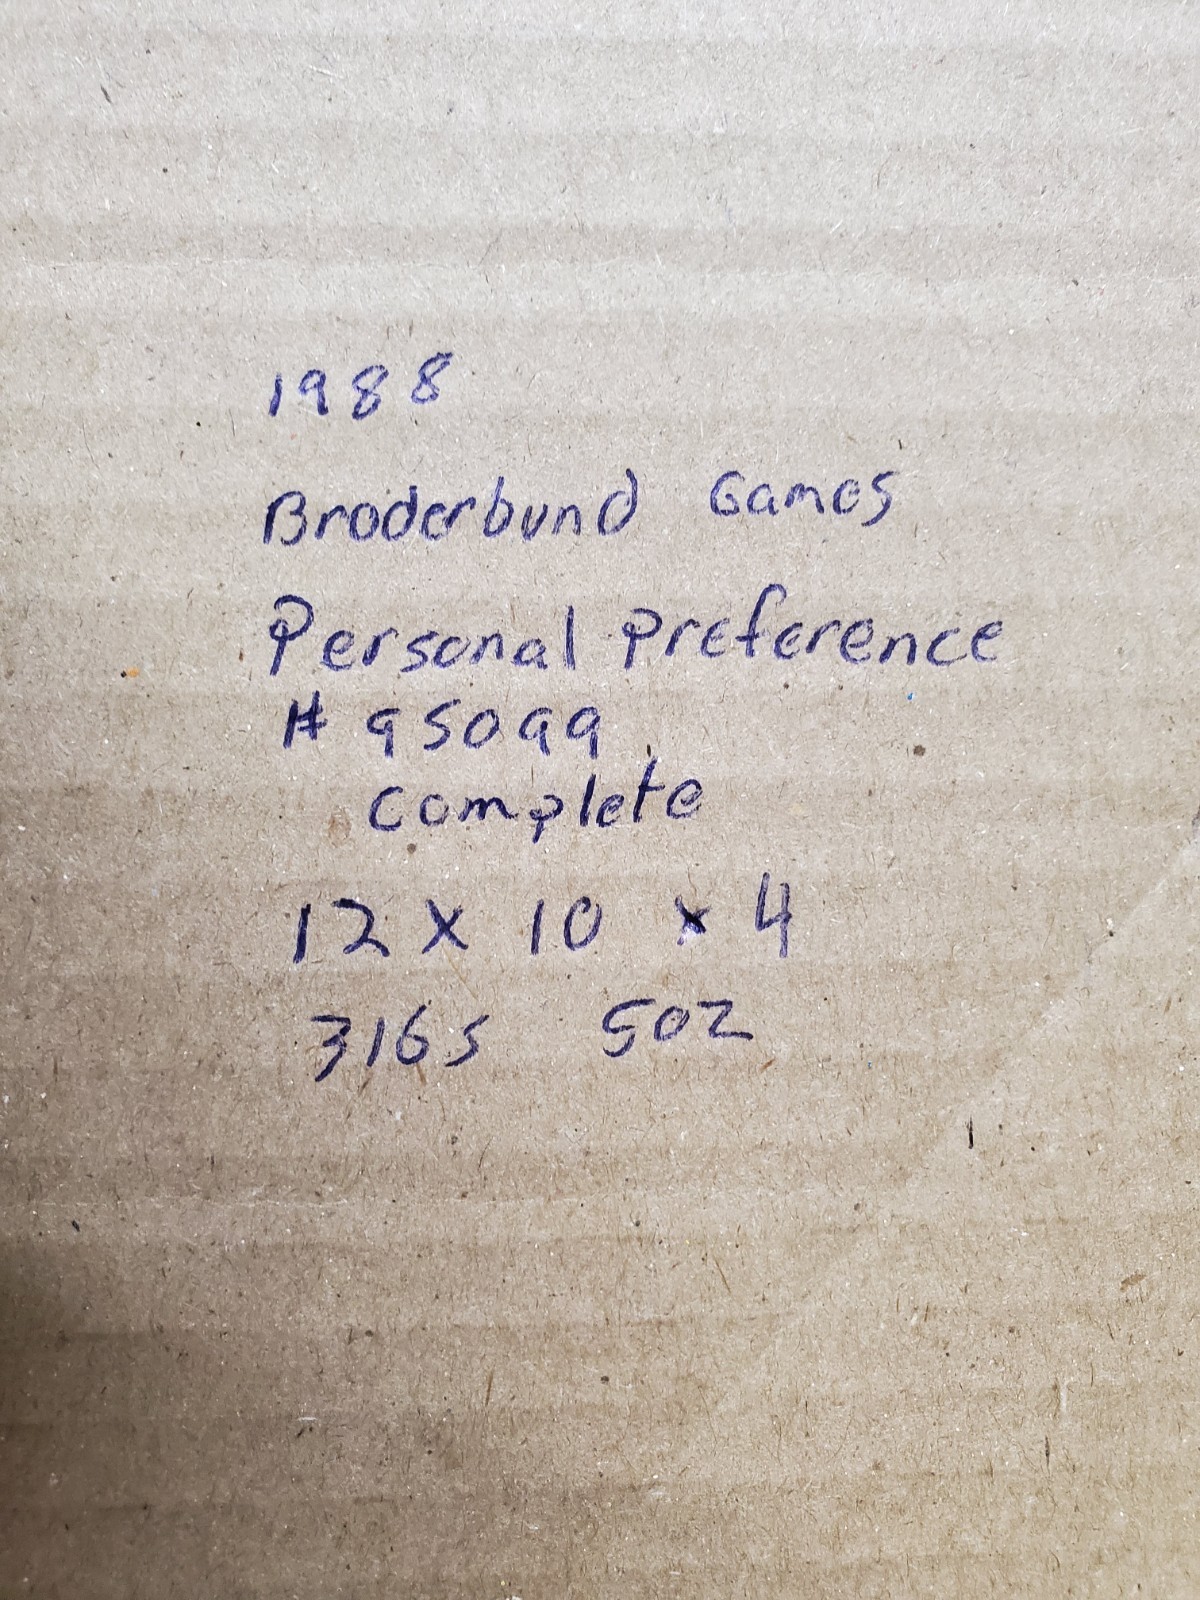 1988
Broderbund Games
Personal Preference
# 95099
complete
12 x 10 x 4
3lbs 5oz